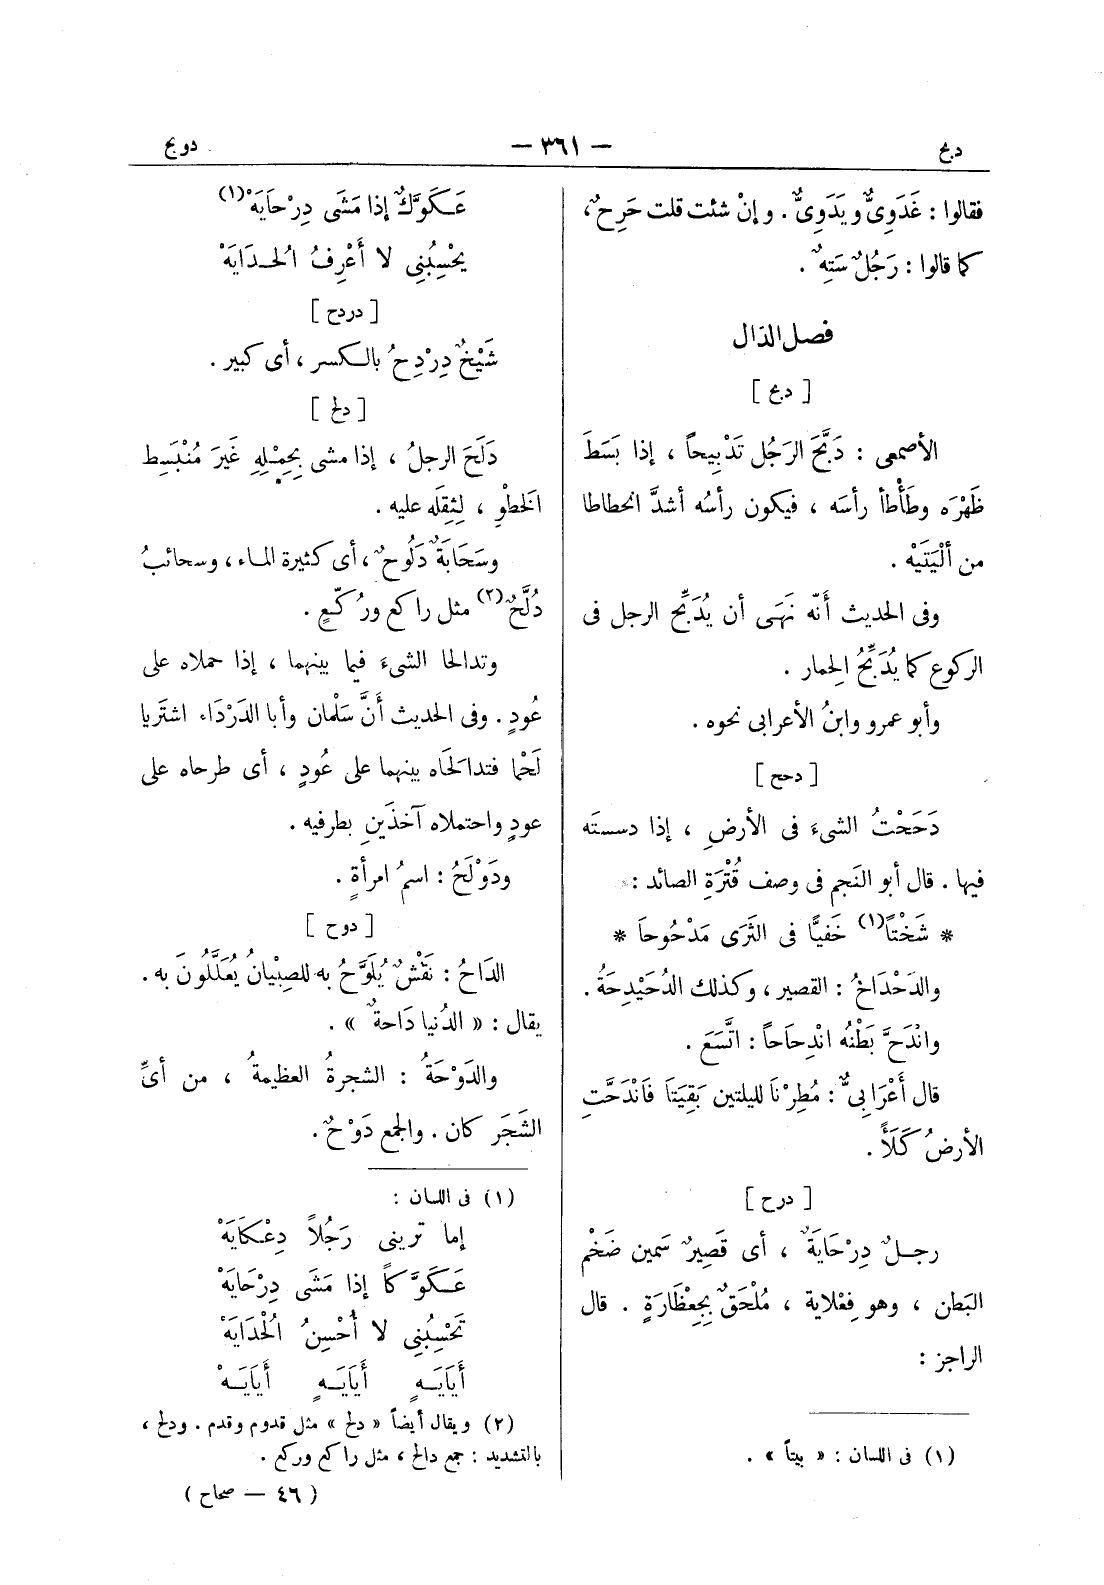 دبح
— ٣٦١ —
دوبح
فقالوا : غَدَوِىٌّ ويَدَوِىٌّ . وإنْ شئت قلت حَرِحٌ ،
كما قالوا : رَجُلٌ سَتِهٌ .
فصل الدّال
[ دبح ]
الأصمعى : دَبَّحَ الرَجُل تَدْبِيحاً ، إذا بَسَطَ
ظَهْرَه وطَأْطَأ رأسَه ، فيكون رأسُه أشدَّ انحطاطا
من ألْيَتَيْه .
وفى الحديث أَنّه نَهَى أن يُدَبِّحَ الرجل فى
الركوع كما يُدَبِّحُ الحِمار .
وأبو عمرو وابنُ الأعرابى نحوه .
[ دحح ]
دَحَحْتُ الشىءَ فى الأرضِ ، إذا دسستَه
فيها . قال أبو النَجم فى وصف قُتْرَةِ الصائد :
* شَخْتاً(١) خَفيًّا فى الثَرَى مَدْحُوحاَ *
والدَحْدَاحُ : القصير ، وكذلك الدُحَيْدِحَةُ .
وانْدَحَّ بَطْنُه انْدِحَاحاً : اتَّسَعَ .
قال أَعْرَابىٌّ : مُطِرْنَا لليلتين بَقِيَتَا فَانْدَحَّتِ
الأرضُ كَلَأً .
[ درح ]
رجلٌ دِرْحَايَةٌ ، أى قَصِيرٌ سَمين ضَخْم
البَطن ، وهو فِعْلاية ، مُلْحَقٌ بِجِعْظَارَةٍ . قال
الراجز :
(١) فى اللسان : « بيتاً » .
عَكَوَّكٌ إذا مَشَى دِرْحَايَهْ(١)
يَحْسِبُنِى لا أَعْرِفُ الحُدَايَهْ
[ دردح ]
شَيْخٌ دِرْدِحُ بالكسر ، أى كبير .
[ دلح ]
دَلَحَ الرجلُ ، إذا مشى بِحِمْلِهِ غَيرَ مُنْبَسِط
الخَطْوِ ، لِثِقَله عليه .
وسَحَابَةٌ دَلُوحٌ ، أى كثيرة الماء ، وسحائبُ
دُلَّحٌ(٢) مثل راكع ورُكّعٍ .
وتدالحا الشىءَ فيما بينهما ، إذا حملاه على
عُودٍ . وفى الحديث أَنَّ سَلْمان وأبا الدَرْدَاء اشتَريا
لَحْما فتدالَحَاه بينهما على عُودٍ ، أى طرحاه على
عودٍ واحتملاه آخذَينِ بطرفيه .
ودَوْلَحُ : اسمُ امرأةٍ .
[ دوح ]
الدَاحُ : نَقْشٌ يُلَوَّحُ به للصِبْيانُ يُعَلَّلُونَ به .
يقال : « الدُنيا دَاحةٌ » .
والدَوْحَةُ : الشجرةُ العظيمةُ ، من أىِّ
الشَجَر كان . والجمع دَوْحٌ .
(١) فى اللسان :
إما ترينى رَجُلاً دِعْكَايَهْ
عَكَوَّكاً إذا مَشَى دِرْحَايَهْ
تَحْسِبُنِى لا أُحْسِنُ الْحُدَايَهْ
أَيَايَهٍ أَيَايَهٍ أَيَايَهْ
(٢) ويقال أيضاً « دلح » مثل قدوم وقدم . ودلح ،
بالتشديد : جمع دالح ، مثل راكع وركع .
( ٤٦ — صحاح )